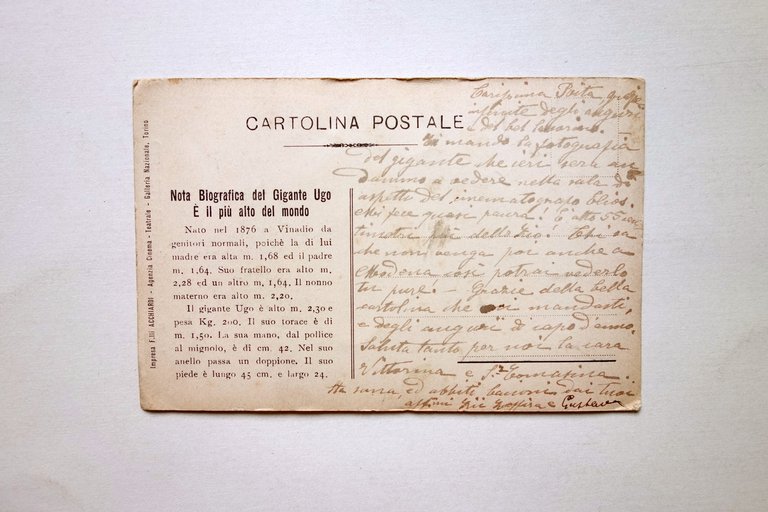 Impresa F.lli ACCHIARDI - Agenzia Cinema - Teatrale - Galleria Nazionale, Torino
CARTOLINA POSTALE
Nota Biografica del Gigante Ugo
È il più alto del mondo
Nato nel 1876 a Vinadio da
genitori normali, poichè la di lui
madre era alta m. 1,68 ed il padre
m. 1,64. Suo fratello era alto m.
2,28 ed un altro m. 1,64. Il nonno
materno era alto m. 2,20.
Il gigante Ugo è alto m. 2,30 e
pesa Kg. 200. Il suo torace è di
m. 1,50. La sua mano, dal pollice
al mignolo, è di cm. 42. Nel suo
anello passa un doppione. Il suo
piede è lungo 45 cm. e largo 24.
Carissima
degli auguri
e del bel lavorino.
Ti mando la fotografia
del gigante che ieri sera an
dammo a vedere nella sala di
aspetto del cinematografo
fece quasi paura! È alto 55 cen
timetri più dello Zio! Chi sa
che non venga poi anche a
Modena così potrai vederlo
tu pure! - Grazie della bella
cartolina che mandasti,
e degli auguri di capo d'anno.
Saluta tanto per noi la cara
Vittorina e
ed abbiti bacioni dai tuoi
Zii e Gustavo